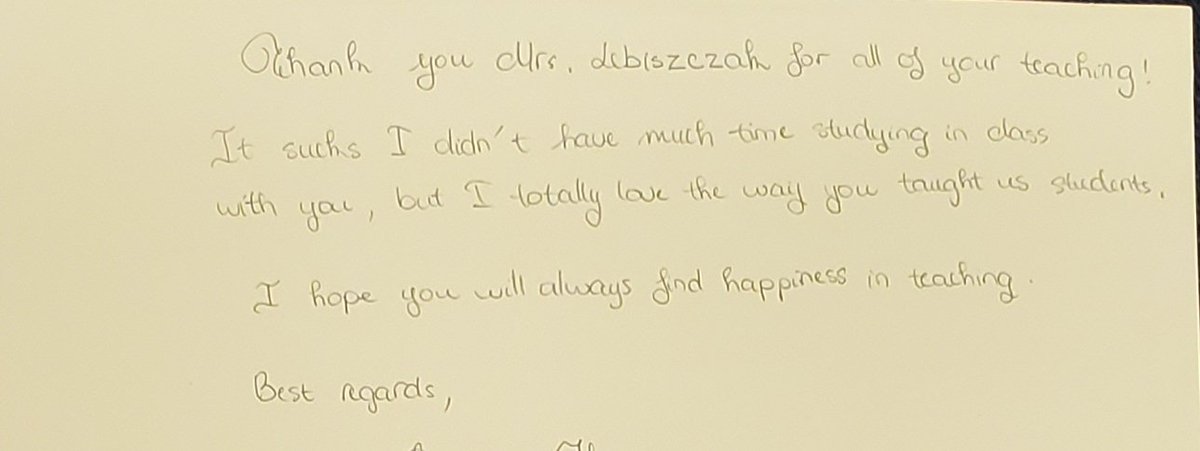 Thank you Mrs. for all of your teaching!
It sucks I didn't have much time studying in class
with you, but I totally love the way you taught us students.
I hope you will always find happiness in teaching.
Best regards,